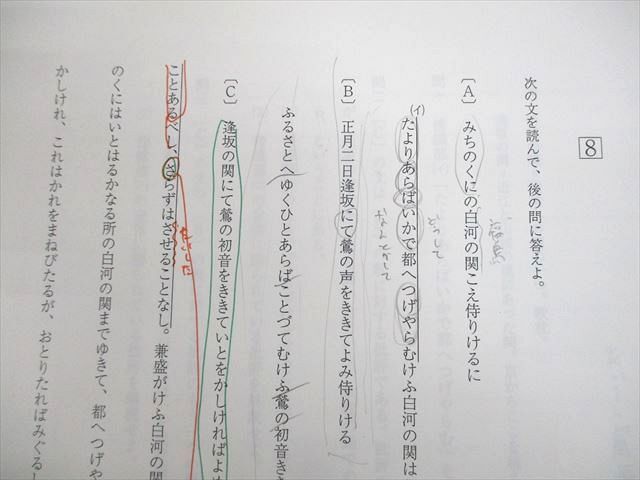 8
次の文を読んで、後の問に答えよ。
〔A〕 みちのくにの白河の関こえ侍りけるに
(イ)
たよりあらばいかで都へつげやらむけふ白河の関は
どうして
なんとかして
〔B〕 正月二日逢坂にて鶯の声をききてよみ侍りける
ふるさとへゆくひとあらばことづてむけふ鶯の初音きき
〔C〕 逢坂の関にて鶯の初音をききていとをかしければよめ
ことあるべし、さらずはさせることなし。兼盛がけふ白河の関
のくにはいとはるかなる所の白河の関までゆきて、都へつげや
かしけれ、これはかれをまねびたるが、おとりたればみぐるし